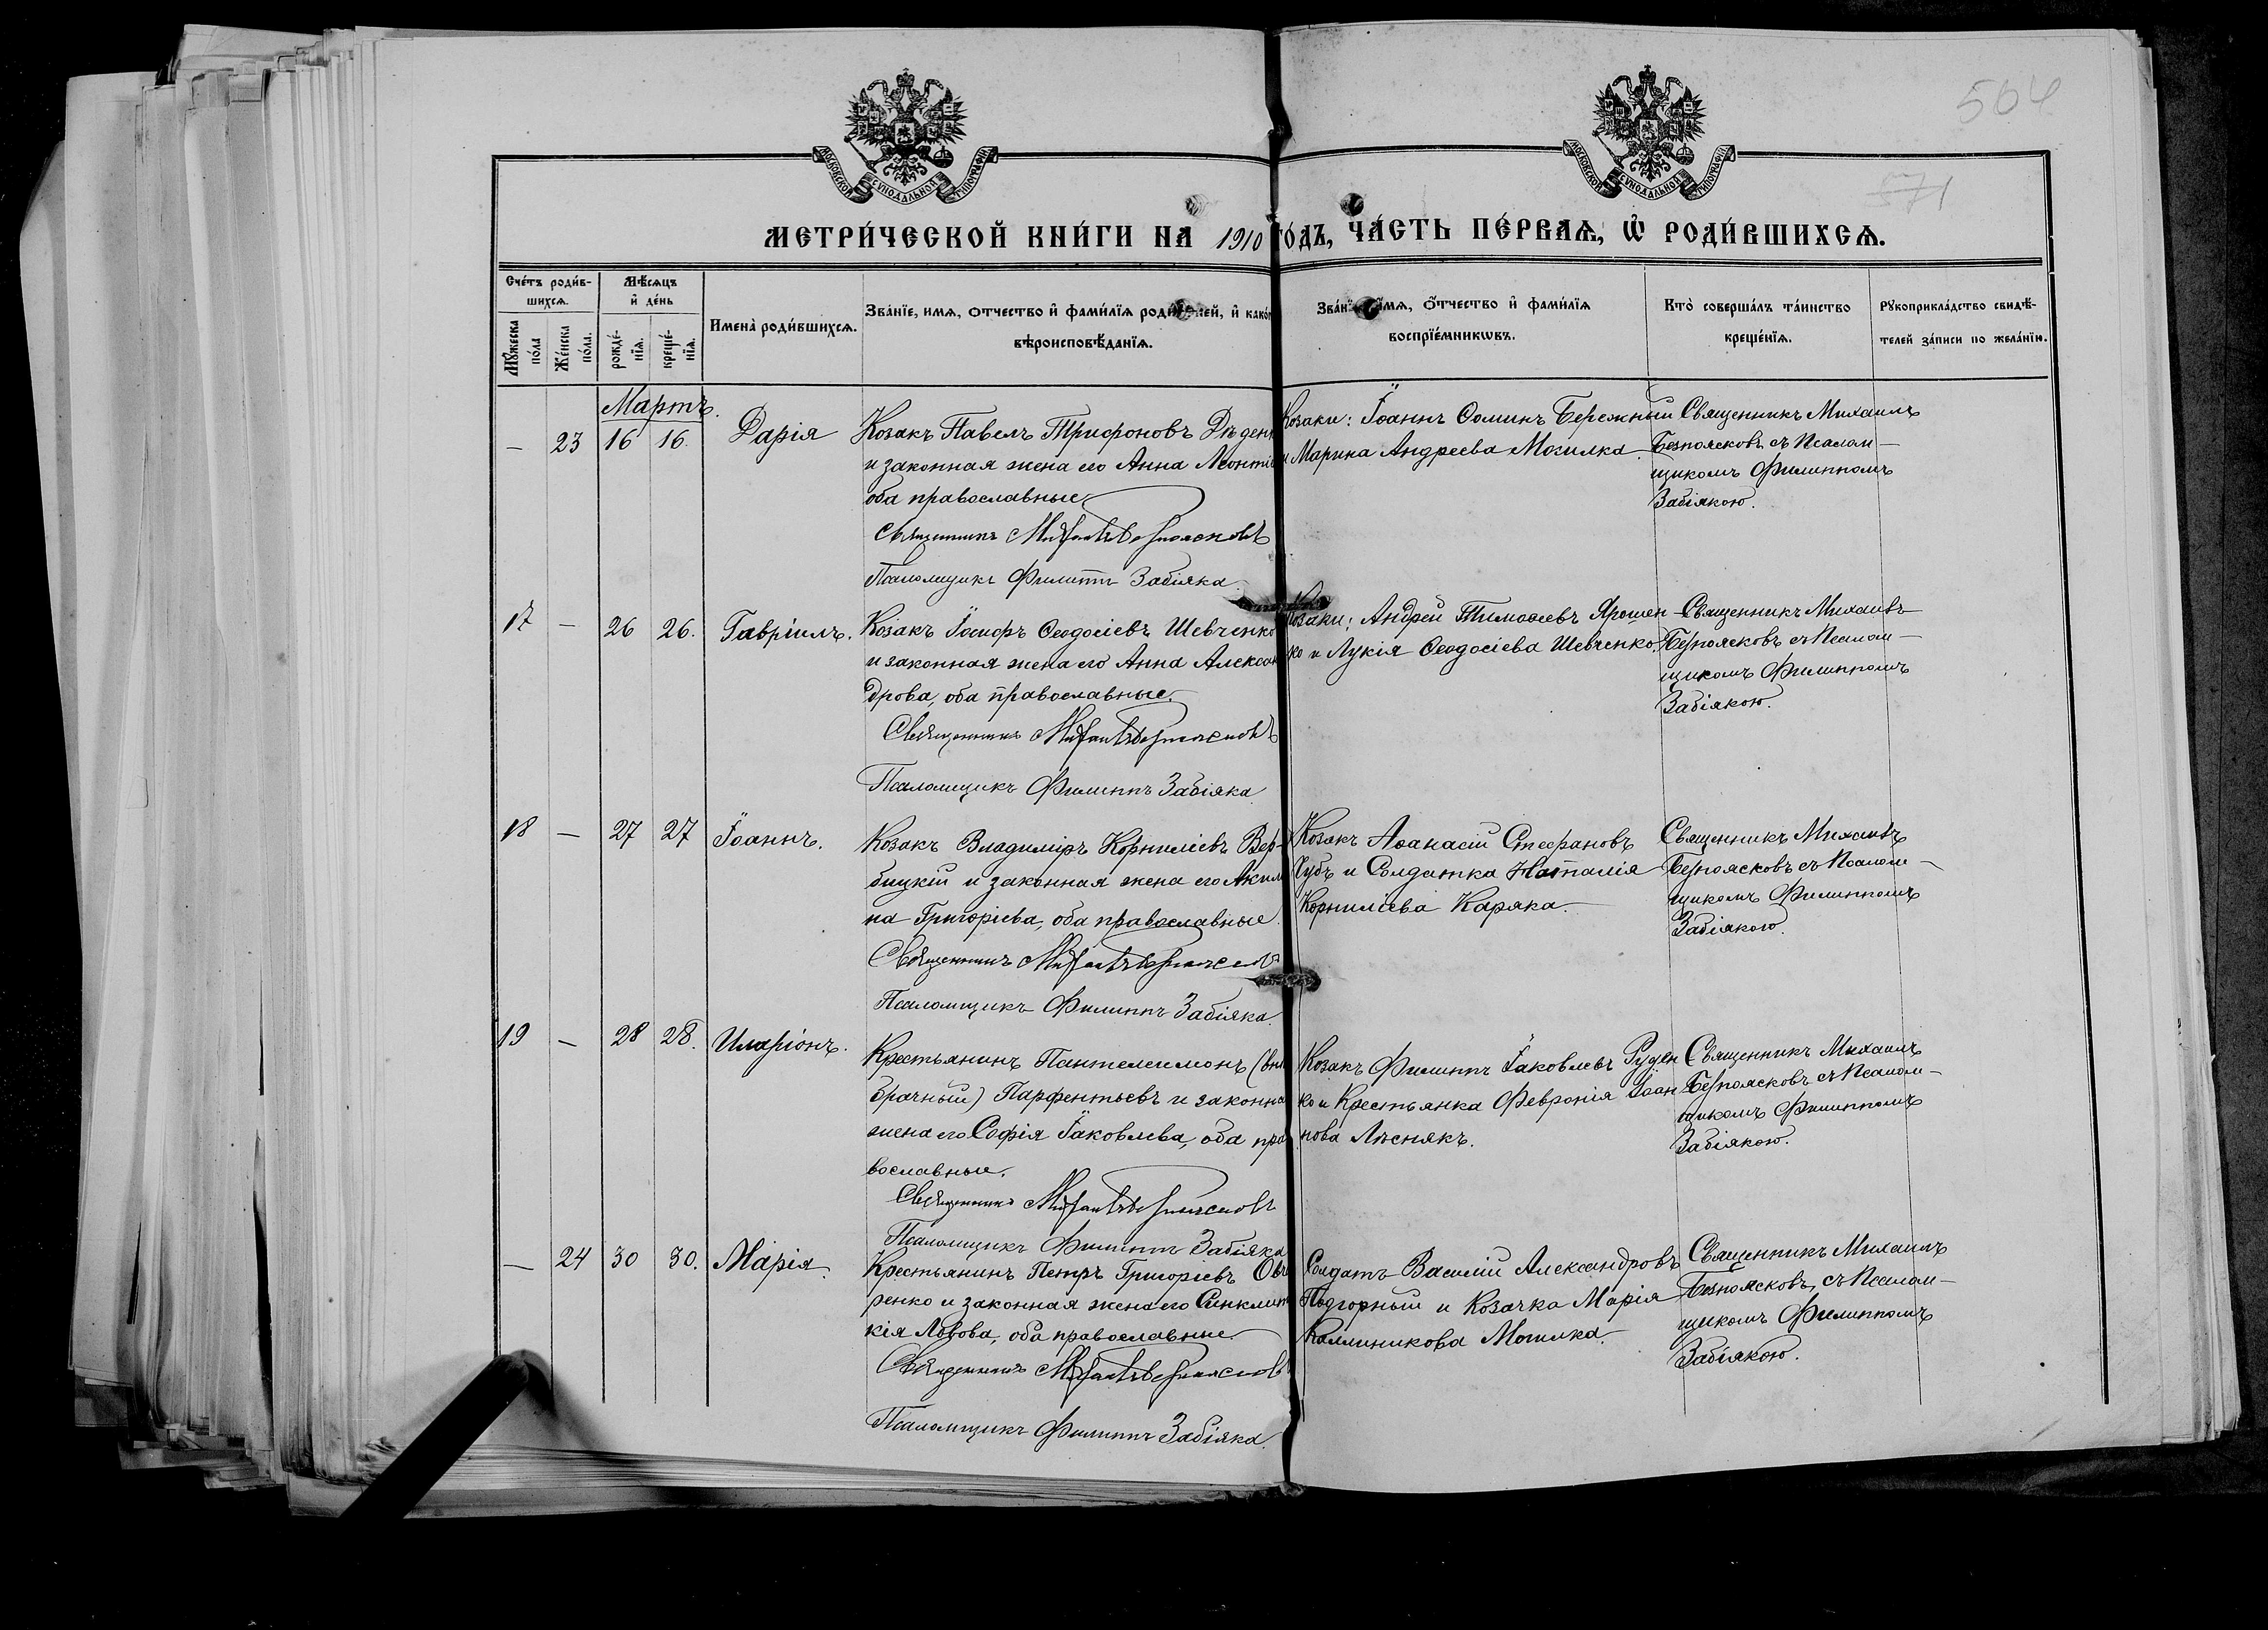 564
МОСКОВСКОЙ СѴНОДАЛЬНОЙ ТИПОГРАФІИ
МОСКОВСКОЙ СѴНОДАЛЬНОЙ ТИПОГРАФІИ
571
МЕТРИ́ЧЕСКОЙ КНИ́ГИ НА 1910 ГО́ДЪ, ЧА́СТЬ ПЕ́РВАѦ, Ѡ҆ РОДИ́ВШИХСѦ.
Сче́тъ роди́в-
шихсѧ.
Мꙋ́жеска по́ла
Же́нска по́ла.
Мѣ́сѧцъ
и҆ де́нь
рожде́-
нїѧ.
креще́-
нїѧ.
Имена̀ роди́вшихсѧ.
Зва́нїе, имѧ, отчество и҆ фами́лїѧ роди́телей, и҆ како́
вѣроисповѣ́данїѧ.
Зва́нїе имѧ, о҆́тчество и҆ фами́лїѧ
воспрїе́мникѡвъ.
Кто̀ соверша́лъ та́инство
креще́нїѧ.
Рꙋкоприкла́дство свидѣ́-
телей за́писи по жела́нїю.
Мартъ.
— 23 16 16. Дарія
Козакъ Павелъ Трифоновъ Дѣден
и законная жена его Анна Леонтіе
оба православные
Священникъ Михаилъ Безпоясковъ
Псаломщикъ Филиппъ Забіяка
Козаки: Іоаннъ Ѳоминъ Бережный
и Марина Андреева Могилка.
Священникъ Михаилъ
Безпоясковъ съ Псалом—
щикомъ Филиппомъ
Забіякою.
17 — 26 26. Гавріилъ.
Козакъ Іосифъ Ѳеодосіевъ Шевченко
и законная жена его Анна Алексан
дрова, оба православные.
Священникъ Михаилъ Безпоясковъ
Псаломщикъ Филиппъ Забіяка
Козаки: Андрей Тимоѳеевъ Ярошен-
ко и Лукія Ѳеодосіева Шевченко.
Священникъ Михаилъ
Безпоясковъ съ Псалом—
щикомъ Филиппомъ
Забіякою.
18 — 27 27 Іоаннъ.
Козакъ Владиміръ Корниліевъ Вер-
бицкій и законная жена его Акили
на Григоріева, оба православные.
Священникъ Михаилъ Безпоясковъ
Псаломщикъ Филиппъ Забіяка.
Козакъ Аѳанасій Стефановъ
Чубъ и Солдатка Наталія
Корниліева Каряка.
Священникъ Михаилъ
Безпоясковъ съ Псалом—
щикомъ Филиппомъ
Забіякою.
19 — 28 28. Иларіонъ.
Крестьянинъ Пантелеимонъ (внѣ
брачный) Парфентьевъ и законна
жена его Софія Іаковлева, оба пра
вославные.
Священникъ Михаилъ Безпоясковъ
Псаломщикъ Филиппъ Забіяка
Козакъ Филиппъ Іаковлевъ Руден
ко и Крестьянка Февронія Іоан
нова Лѣснякъ.
Священникъ Михаилъ
Безпоясковъ съ Псалом—
щикомъ Филиппомъ
Забіякою.
— 24 30 30. Марія.
Крестьянинъ Петръ Григоріевъ Овч
ренко и законная жена его Синклит
кія Львова, оба православные
Священникъ Михаилъ Безпоясковъ
Псаломщикъ Филиппъ Забіяка.
Солдатъ Василій Александровъ
Подгорный и Козачка Марія
Каллиникова Могилка.
Священникъ Михаилъ
Безпоясковъ, съ Псалом—
щикомъ Филиппомъ
Забіякою.